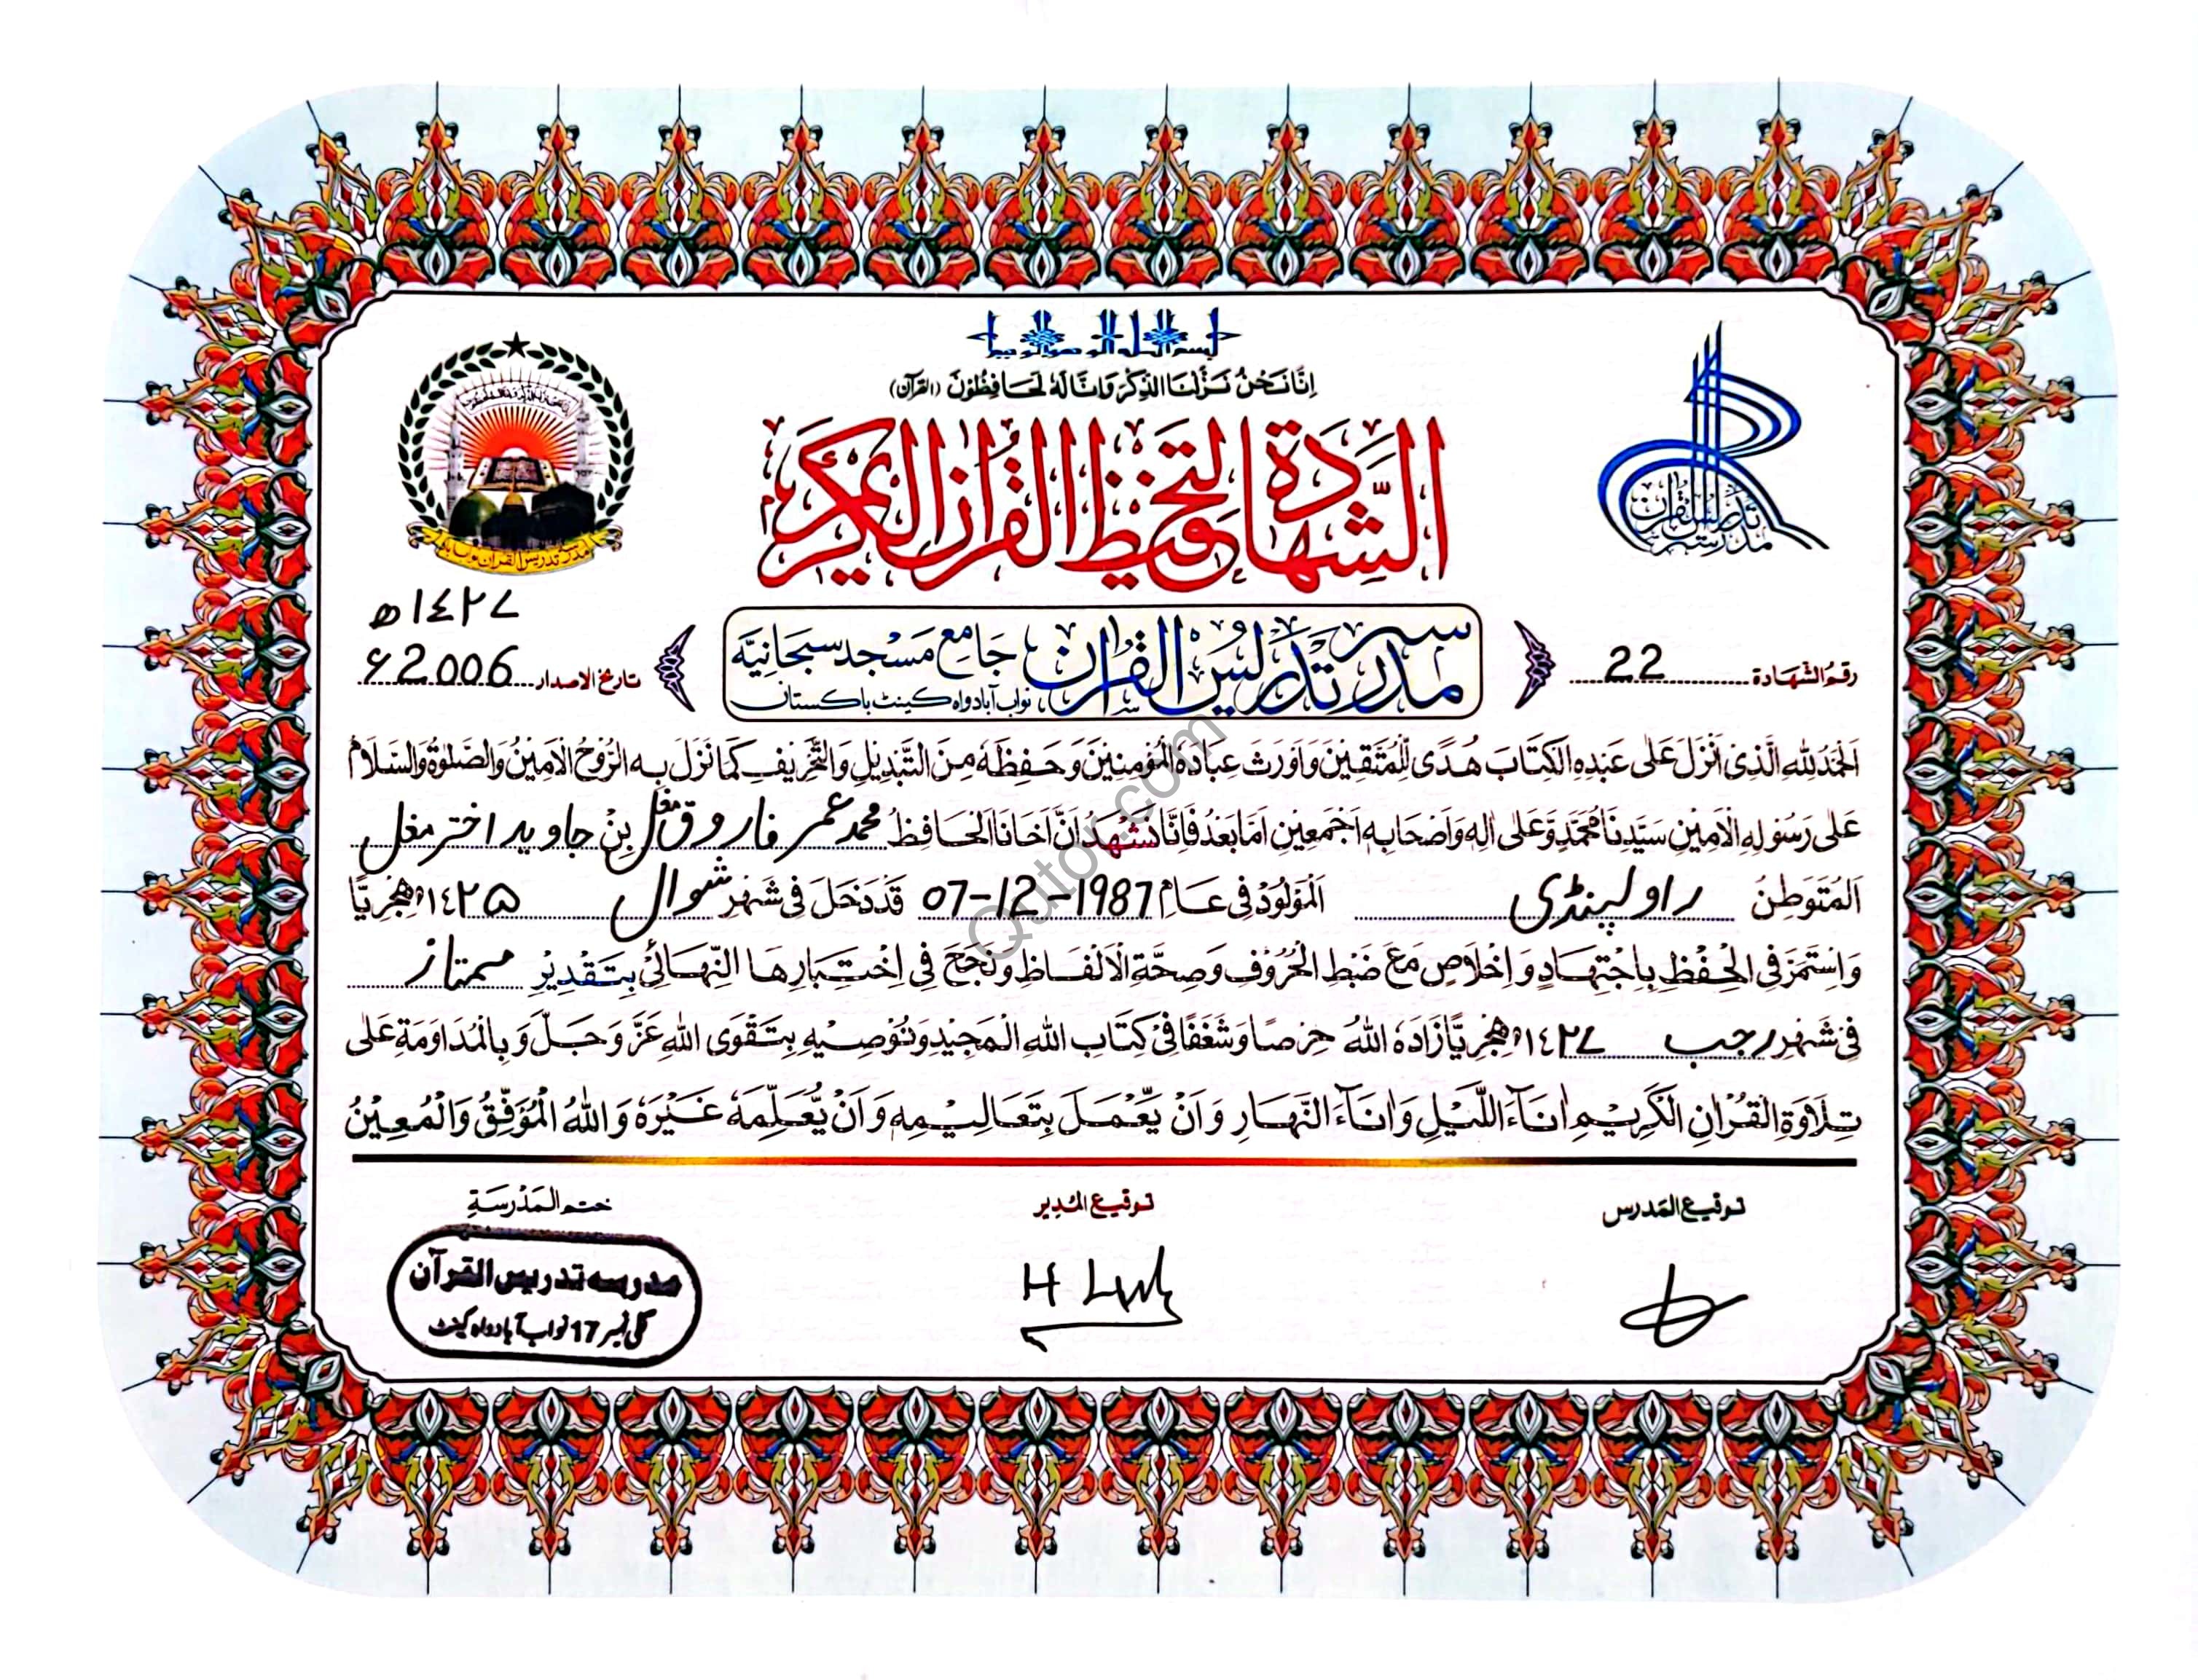 بسم الله الرحمن الرحيم
اِنَّا نَحْنُ نَزَّلْنَا الذِّكْرَ وَاِنَّا لَهٗ لَحَافِظُوْنَ (القرآن)
الشَّهَادَةُ لِتَحْفِيْظِ الْقُرْاٰنِ الْكَرِيْمِ
مدرسہ تدریس القرآن
مدرسہ تدریس القرآن نواب آباد
۱٤۲۷ ھ
مدرسہ تدریس القرآن جامع مسجد سبحانیہ
نواب آباد واہ کینٹ پاکستان
رقم الشهادة 22
تاریخ الاصدار 2006ء
اَلْحَمْدُ لِلّٰهِ الَّذِیْ اَنْزَلَ عَلٰی عَبْدِهِ الْكِتَابَ هُدًی لِّلْمُتَّقِيْنَ وَاَوْرَثَ عِبَادَهُ الْمُؤْمِنِيْنَ وَحَفِظَهٗ مِنَ التَّبْدِيْلِ وَالتَّحْرِيْفِ كَمَا نَزَلَ بِهِ الرُّوْحُ الْاَمِيْنُ وَالصَّلٰوةُ وَالسَّلَامُ
عَلٰی رَسُوْلِهِ الْاَمِيْنِ سَيِّدِنَا مُحَمَّدٍ وَّعَلٰی اٰلِهٖ وَاَصْحَابِهٖ اَجْمَعِيْنِ اَمَّا بَعْدُ فَاِنَّا نَشْهَدُ اَنَّ اَخَانَا الْحَافِظُ محمد عمر فاروق مغل بِنْ جاوید اختر مغل
اَلْمُتَوَطِنُ راولپنڈی اَلْمَوْلُوْدُ فِیْ عَامِ 07-12-1987 قَدْ دَخَلَ فِیْ شَهْرِ شوال ۱٤۲۵ هِجْرِيًّا
وَاسْتَمَرَّ فِی الْحِفْظِ بِاجْتِهَادٍ وَاِخْلَاصٍ مَعَ ضَبْطِ الْحُرُوْفِ وَصِحَّةِ الْاَلْفَاظِ وَنَجَحَ فِیْ اِخْتِبَارِهَا النِّهَائِیْ بِتَقْدِيْرِ ممتاز
فِیْ شَهْرِ رجب ۱٤۲۷ هِجْرِيًّا زَادَهُ اللهُ حِرْصًا وَشَغَفًا فِیْ كِتَابِ اللهِ الْمَجِيْدِ وَنُوْصِيْهِ بِتَقْوَی اللهِ عَزَّ وَجَلَّ وَبِالْمُدَاوَمَةِ عَلٰی
تِلَاوَةِ الْقُرْاٰنِ الْكَرِيْمِ اٰنَآءَ اللَّيْلِ وَاٰنَآءَ النَّهَارِ وَاَنْ يَّعْمَلَ بِتَعَالِيْمِهٖ وَاَنْ يُّعَلِّمَهٗ غَيْرَهٗ وَاللهُ الْمُوَفِّقُ وَالْمُعِيْنُ
توقيع المدرس
توقيع المدير
ختم المدرسة
مدرسہ تدریس القرآن
گلی نمبر 17 نواب آباد واہ کینٹ
Qutor.com